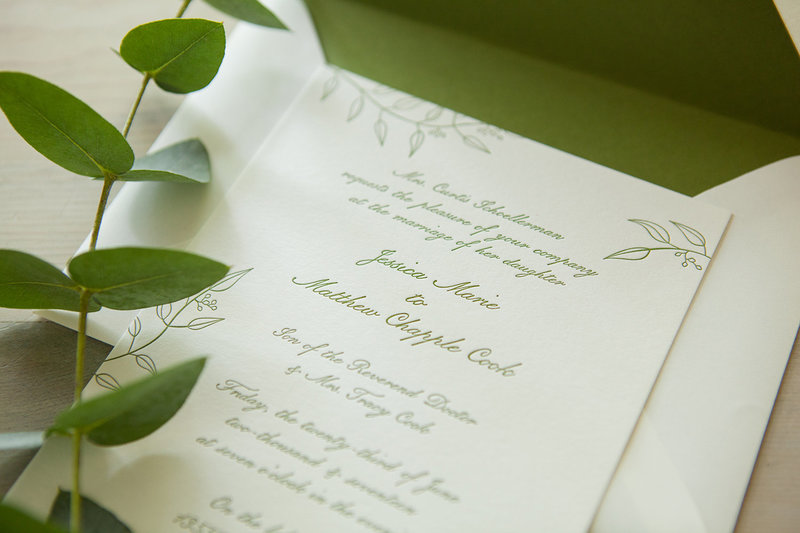 Mrs. Curtis Schoellerman
requests the pleasure of your company
at the marriage of her daughter
Jessica Marie
to
Matthew Chapple Cook
Son of the Reverend Doctor
& Mrs. Tracy Cook
Friday, the twenty-third of June
two-thousand & seventeen
at seven o'clock in the
On the